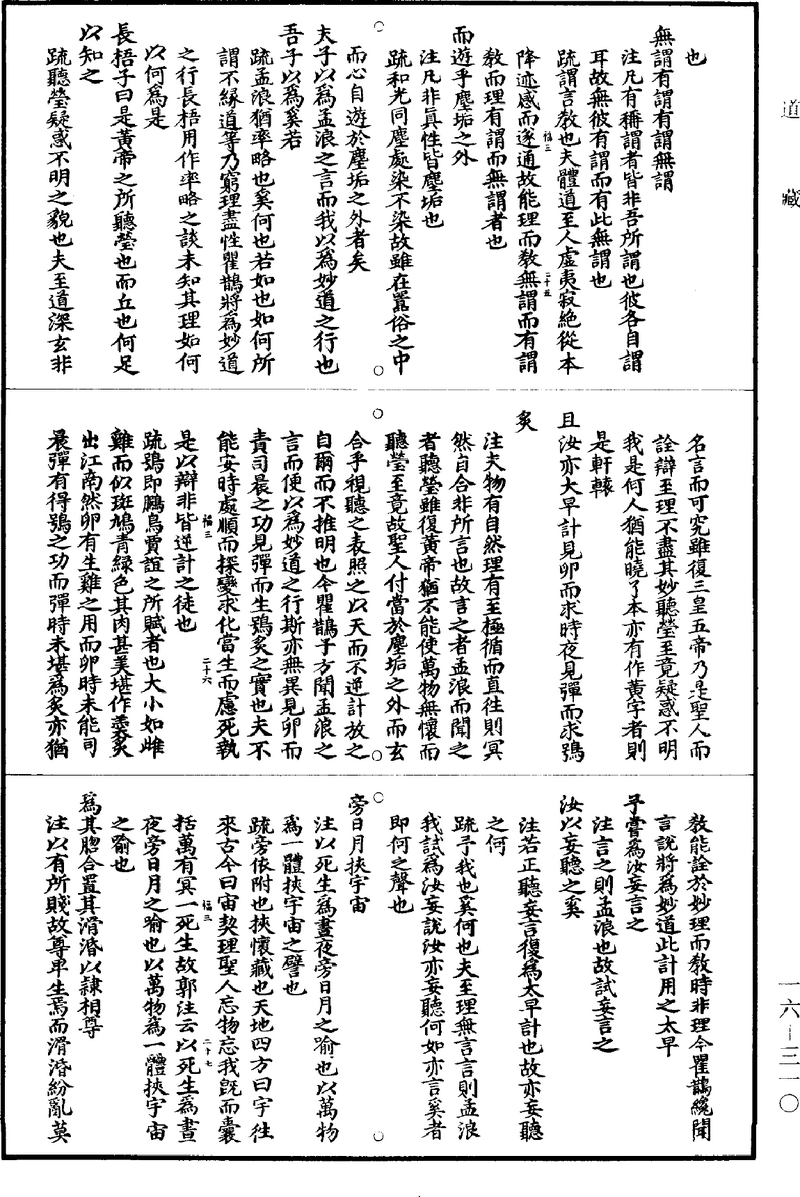 道藏
也
無謂有謂有謂無謂
注凡有稱謂者皆非吾所謂也彼各自謂
耳故無彼有謂而有此無謂也
疏謂言教也夫體道至人虛夷寂絕從本
降迹感而遂通故能理而教無謂而有謂
教而理有謂而無謂者也
而遊乎塵垢之外
注凡非真性皆塵垢也
疏和光同塵處染不染故雖在囂俗之中
而心自遊於塵垢之外者矣
夫子以為孟浪之言而我以為妙道之行也
吾子以為奚若
疏孟浪猶率略也奚何也若如也如何所
謂不緣道等乃窮理盡性瞿鵲將為妙道
之行長梧用作率略之談未知其理如何
以何為是
長梧子曰是黃帝之所聽瑩也而丘也何足
以知之
疏聽瑩疑惑不明之貌也夫至道深玄非
福三
二十五
名言而可究雖復三皇五帝乃是聖人而
詮辯至理不盡其妙聽瑩至竟疑惑不明
我是何人猶能曉了本亦有作黃字者則
是軒轅
且汝亦大早計見卵而求時夜見彈而求鴞
炙
注夫物有自然理有至極循而直往則冥
然自合非所言也故言之者孟浪而聞之
者聽瑩雖復黃帝猶不能使萬物無懷而
聽瑩至竟故聖人付當於塵垢之外而玄
合乎視聽之表照之以天而不逆計放之
自爾而不推明也今瞿鵲子方聞孟浪之
言而便以為妙道之行斯亦無異見卵而
責司晨之功見彈而生鴞炙之實也夫不
能安時處順而探變求化當生而慮死執
是以辯非皆逆計之徒也
疏鴞即鵬鳥賈誼之所賦者也大小如雌
雞而似斑鳩青綠色其肉甚美堪作羹炙
出江南然卵有生雞之用而卵時未能司
晨彈有得鴞之功而彈時未堪為炙亦猶
福三
二十六
教能詮於妙理而教時非理今瞿鵲纔聞
言說將為妙道此計用之太早
予嘗為汝妄言之
注言之則孟浪也故試妄言之
汝以妄聽之奚
注若正聽妄言復為太早計也故亦妄聽
之何
疏予我也奚何也夫至理無言言則孟浪
我試為汝妄說汝亦妄聽何如亦言奚者
即何之聲也
旁日月挾宇宙
注以死生為晝夜旁日月之喻也以萬物
為一體挾宇宙之譬也
疏旁依附也挾懷藏也天地四方曰宇往
來古今曰宙契理聖人忘物忘我既而囊
括萬有冥一死生故郭注云以死生為晝
夜旁日月之喻也以萬物為一體挾宇宙
之喻也
為其脗合置其滑涽以隸相尊
注以有所賤故尊卑生焉而滑涽紛亂莫
福三
二十七
一六—三一〇